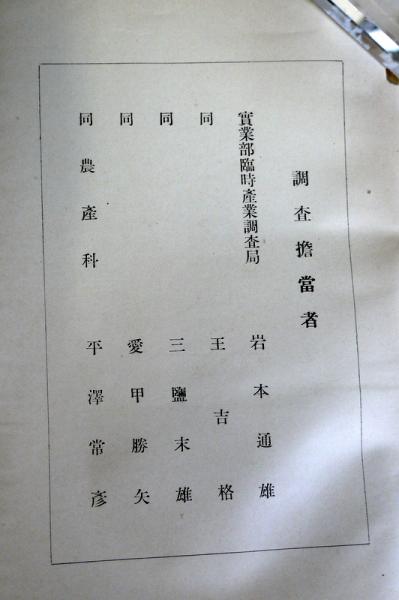 調査擔當者
實業部臨時產業調査局 岩本通雄
同 王吉格
同 三鹽末雄
同 愛甲勝矢
同農產科 平澤常彥